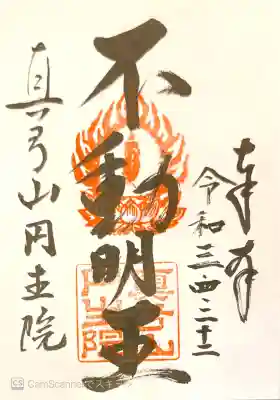 奉拝
令和三四二十二
不動明王
真弓山円生院
CS CamScannerでスキ